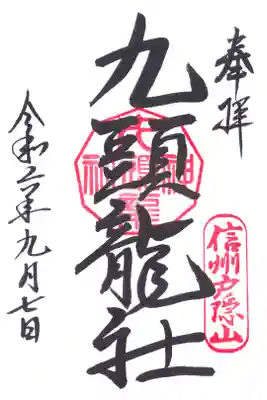 奉拝
信州戸隠山
九頭龍社
令和二年九月七日